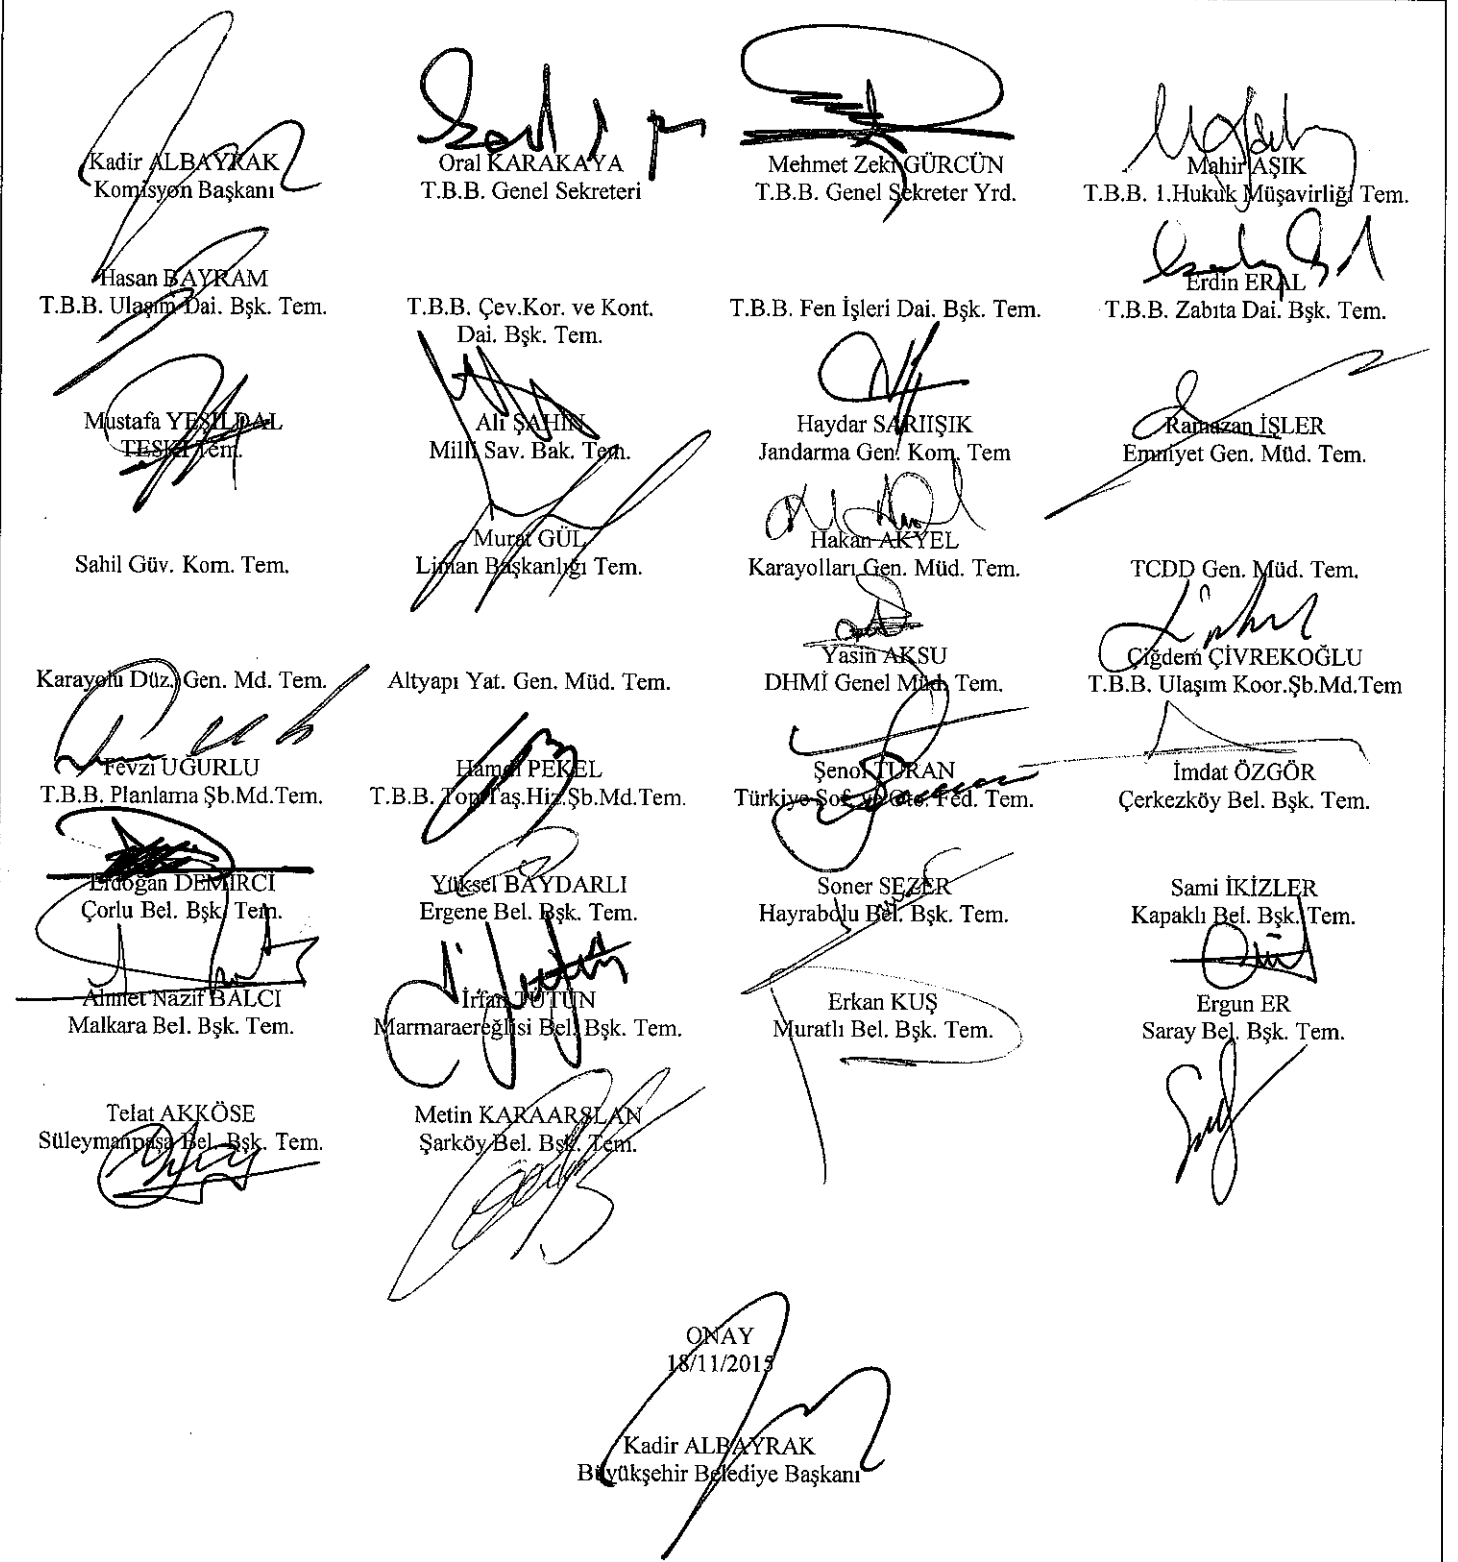 Kadir ALBAYRAK
Komisyon Başkanı
Oral KARAKAYA
T.B.B. Genel Sekreteri
Mehmet Zeki GÜRCÜN
T.B.B. Genel Sekreter Yrd.
Mahir AŞIK
T.B.B. 1.Hukuk Müşavirliği Tem.
Hasan BAYRAM
T.B.B. Ulaşım Dai. Bşk. Tem.
T.B.B. Çev.Kor. ve Kont.
Dai. Bşk. Tem.
T.B.B. Fen İşleri Dai. Bşk. Tem.
Erdin ERAL
T.B.B. Zabıta Dai. Bşk. Tem.
Mustafa YEŞİLDAL
TESKİ Tem.
Ali ŞAHİN
Milli Sav. Bak. Tem.
Haydar SARIIŞIK
Jandarma Gen. Kom. Tem
Ramazan İŞLER
Emniyet Gen. Müd. Tem.
Sahil Güv. Kom. Tem.
Murat GÜL
Liman Başkanlığı Tem.
Hakan AKYEL
Karayolları Gen. Müd. Tem.
TCDD Gen. Müd. Tem.
Karayolu Düz. Gen. Md. Tem.
Altyapı Yat. Gen. Müd. Tem.
Yasin AKSU
DHMİ Genel Müd. Tem.
Çiğdem ÇİVREKOĞLU
T.B.B. Ulaşım Koor.Şb.Md.Tem
Fevzi UĞURLU
T.B.B. Planlama Şb.Md.Tem.
Hamdi PEKEL
T.B.B. Top.Taş.Hiz.Şb.Md.Tem.
Şenol TURAN
Türkiye Şof. ve Oto. Fed. Tem.
İmdat ÖZGÖR
Çerkezköy Bel. Bşk. Tem.
Erdoğan DEMİRCİ
Çorlu Bel. Bşk. Tem.
Yüksel BAYDARLI
Ergene Bel. Bşk. Tem.
Soner SEZER
Hayrabolu Bel. Bşk. Tem.
Sami İKİZLER
Kapaklı Bel. Bşk. Tem.
Ahmet Nazif BALCI
Malkara Bel. Bşk. Tem.
İrfan TÜTÜN
Marmaraereğlisi Bel. Bşk. Tem.
Erkan KUŞ
Muratlı Bel. Bşk. Tem.
Ergun ER
Saray Bel. Bşk. Tem.
Telat AKKÖSE
Süleymanpaşa Bel. Bşk. Tem.
Metin KARAARSLAN
Şarköy Bel. Bşk. Tem.
ONAY
18/11/2015
Kadir ALBAYRAK
Büyükşehir Belediye Başkanı